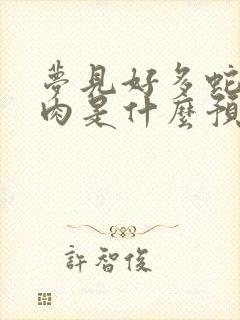 夢見好多蛇
肉是什麼預
許智俊